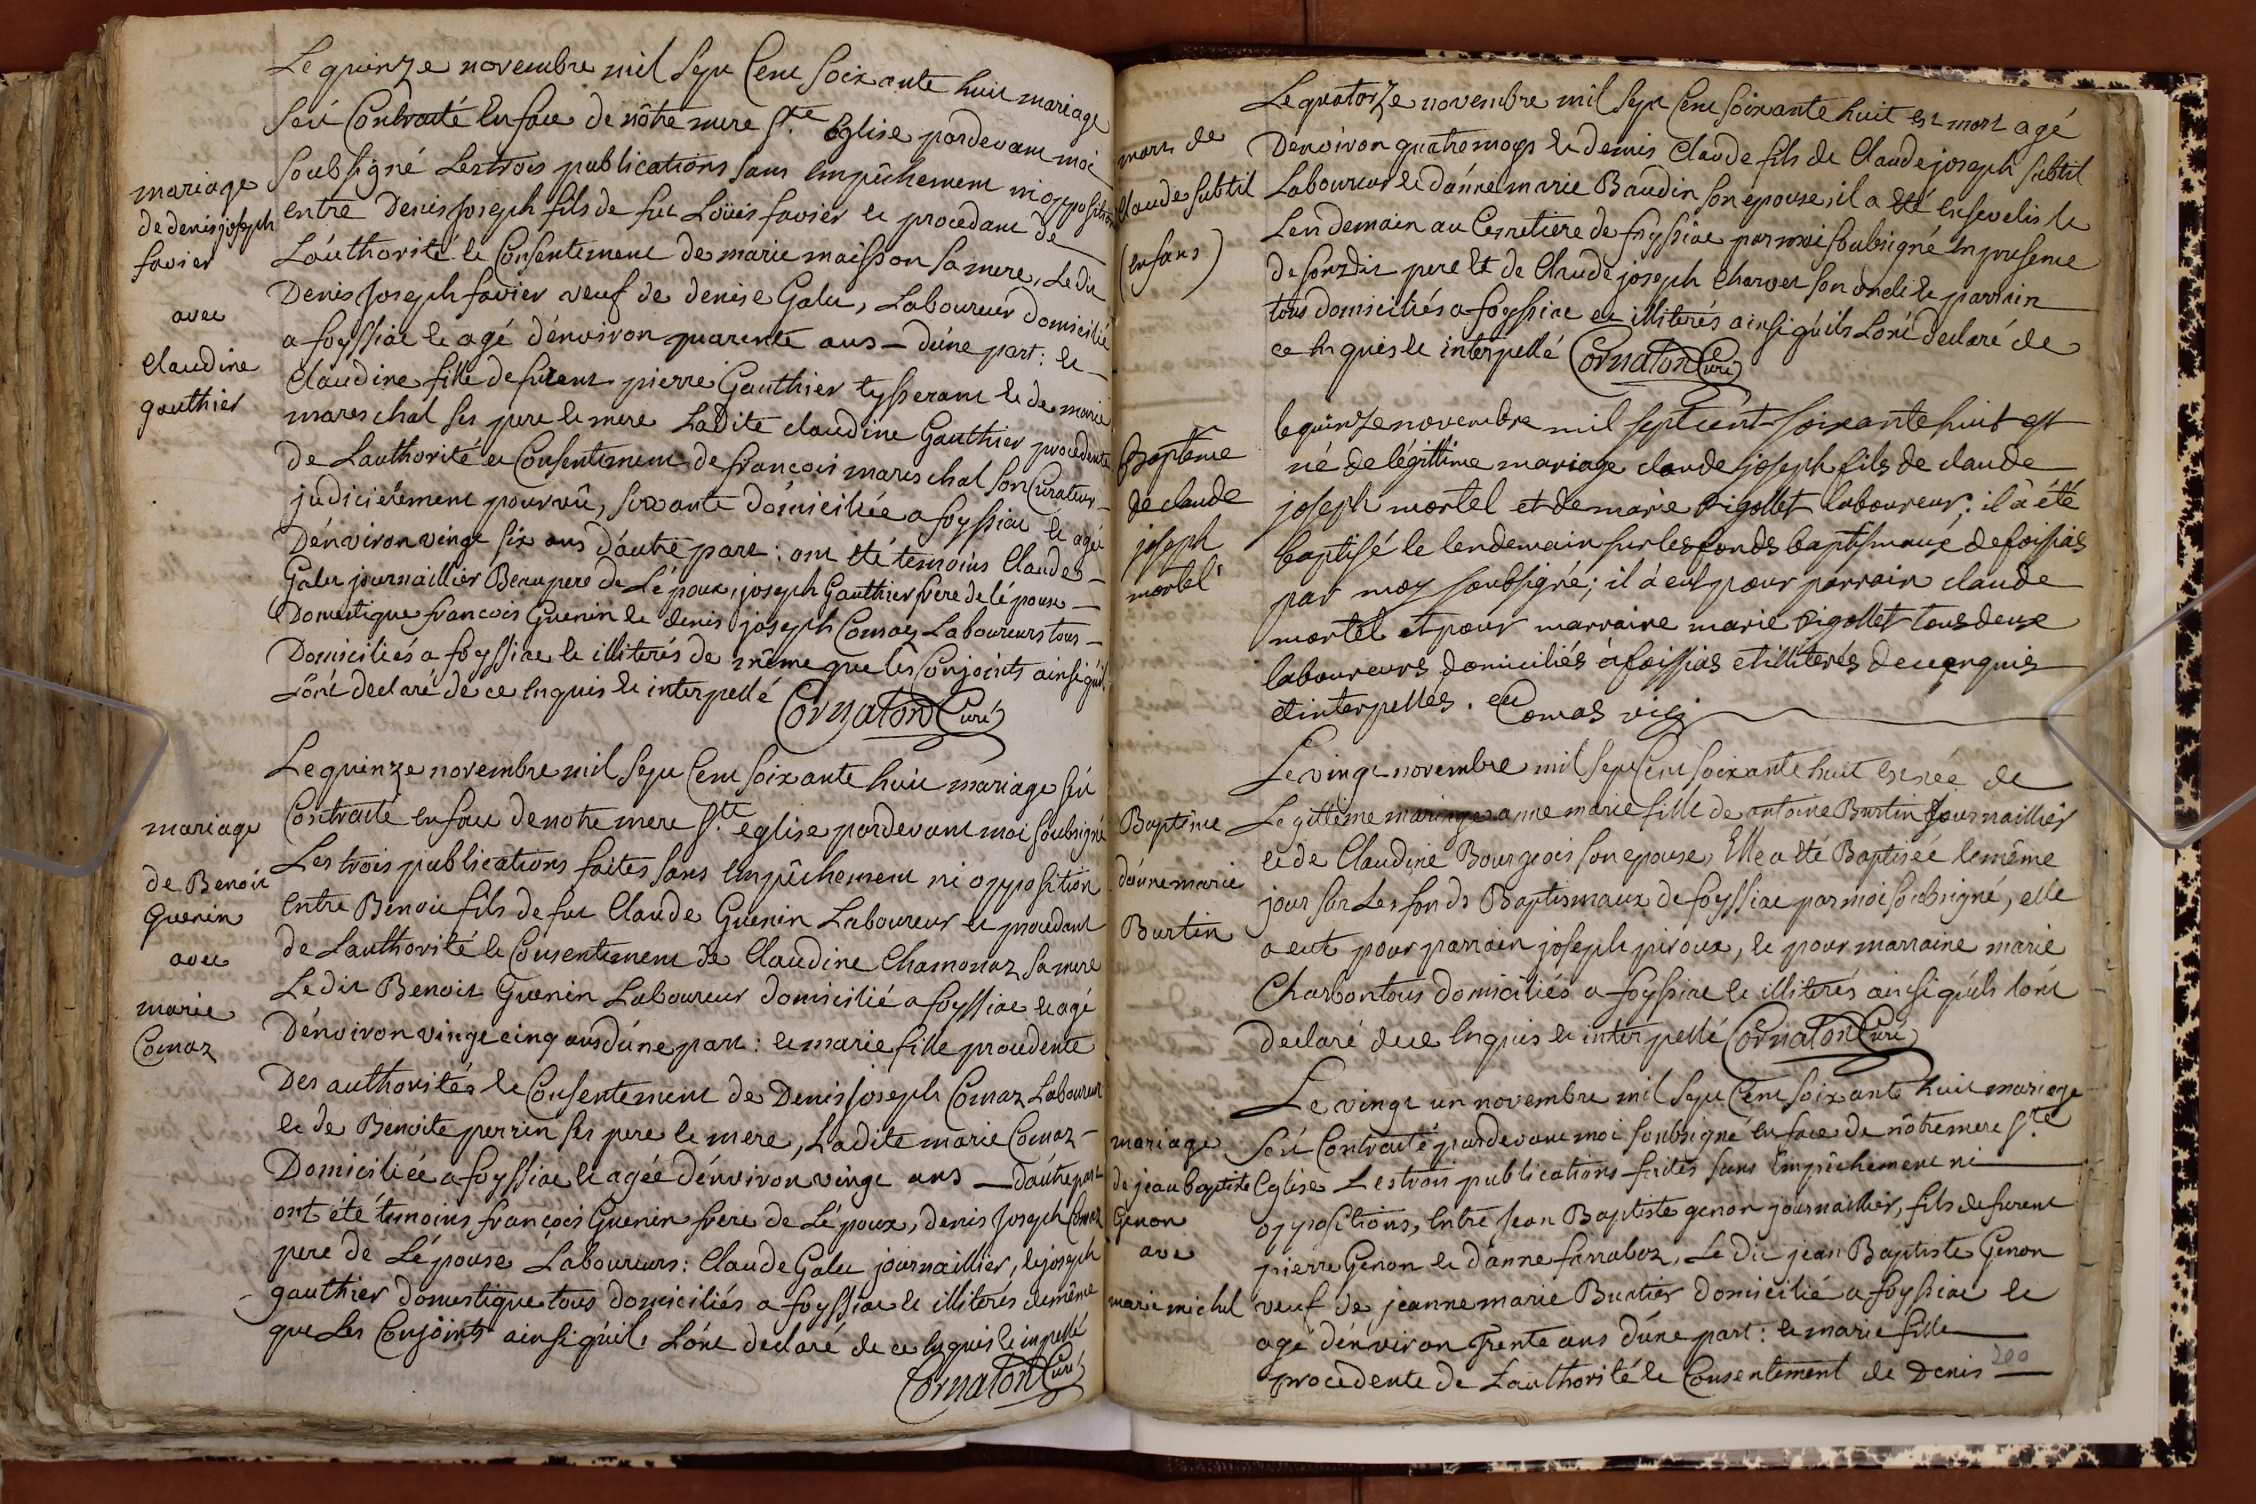 Le quinze novembre mil sept Cent soixante huit mariage
seú Contracté en face de nôtre mere Ste Eglise pardevant moi
soubsigné Les trois publications sans Empêchement ni opposition
mariage
de denis joseph
favier
avec
claudine
gauthier
entre Denis Joseph fils de fut Loüis favier et procedant de
L'authorité et Consentement de marie maisson sa mere, Le dit
Denis Joseph favier veuf de denise Galet, Laboureur domicilié
a foyssiat et agé dénviron quarente ans — dúne part : et —
Claudine fille de furent pierre Gauthier tysserant et de marie
mareschal ses pere et mere Ladite claudine Gauthier procedente
de Lauthorité et Consentement de francois mareschal son Curateur
judicierement pourvû, servante domiciliée a foyssiat et agé
Dénviron vingt six ans d'autre part : ont été temoins Claude
Galet journaillier Beaupere de Lépoux, joseph Gauthier frere de lépouse
Domestique francois Guenin et denis joseph Comaz Laboureurs tous
Domiciliés a foyssiat et illiterés de même que les Conjoints ainsi qu'il
Lónt declaré de ce Enquis et interpellé Cornaton Curé
mariage
de Benoit
Guenin
avec
marie
Comaz
Le quinze novembre mil sept Cent soixante huit mariage seú
Contracté en face de notre mere Ste église pardevant moi soubsigné
Les trois publications faites sans Empêchement ni opposition
Entre Benoit fils de fut Claude Guenin Laboureur et procedant
de Lauthorité et Consentement de Claudine Chamonaz sa mere
Ledit Benoit Guenin Laboureur domicilié a foyssiat et agé
Dénviron vingt cinq ans dúne part : et marie fille procedente
Des authorités et Consentement de Denis Joseph Comaz Laboureur
et de Benoite perrin ses pere et mere, Ladite marie Comaz —
Domiciliée a foyssiat et agée dénviron vingt ans — dáutre part
ont été témoins françois Guenin frere de Lépoux, denis Joseph Comaz
pere de Lépouse Laboureurs : Claude Galet journaillier, et joseph
gauthier domestique tous domiciliés a foyssiat et illiterés demême
que Les Conjoints ainsi qu'ils Lónt declaré de ce Enquis et
Cornaton Curé
mort de
Claude subtil
(enfans)
Le quatorze novembre mil sept Cent soixante huit est mort agé
Dénvoiron quatre moys et demis Claude fils de Claude joseph subtil
Laboureur et dánne marie Baudin son epouse, il a été Ensevelis le
Lendemain au Cemetiere de foyssiat par moi soubsigné En presence
de sondit pere et de Claude joseph Charvet son oncle et parrain
tous domiciliés a foyssiat et illiterés ainsi qúils Lónt declaré de
ce Enquis et interpellé Cornaton Curé
Baptême
de claude
joseph
mortel
le quinze novembre mil sept cent soixante huit est
né de légittime mariage claude joseph fils de claude
joseph mortel et de marie rigollet laboureur ; il à été
baptisé le lendemain sur les fonds baptismaux de foissias
par moy soubsigné ; il à eut pour parrain claude
mortel et pour marraine marie rigollet tous deux
laboureurs domiciliés à foissias et illiterés de ce enquis
et interpellés. Comas vic.
Baptême
dánne marie
Burtin
Le vingt novembre mil sept Cent soixante huit est née de
Legitteme mariage anne marie fille de antoine Burtin Journaillier
et de Claudine Bourgeois son epouse, Elle a été Baptisée le même
jour sur Les fonds Baptismaux de foyssiat par moi soubsigné, elle
a eut pour parrain joseph piroux, et pour marraine marie
Charbon tous domiciliés a foyssiat et illiterés ainsi qúils lónt
declaré de ce Enquis et interpellé Cornaton Curé
mariage
de jean baptiste
Genon
avec
marie michel
Le vingt un novembre mil sept Cent soixante huit mariage
seú Contracté pardevant moi soubsigné en face de nôtre mere Ste
Eglise Les trois publications faites sans Empêchement ni
oppositions, Entre Jean Baptiste genon journaillier, fils de furent
pierre Genon et dánne farraboz, Le dit jean Baptiste Genon
veuf de jeanne marie Buatier domicilié a foyssiat et
agé dénviron Trente ans dúne part : et marie fille
procedente de Lauthorité et Consentement de Denis
200